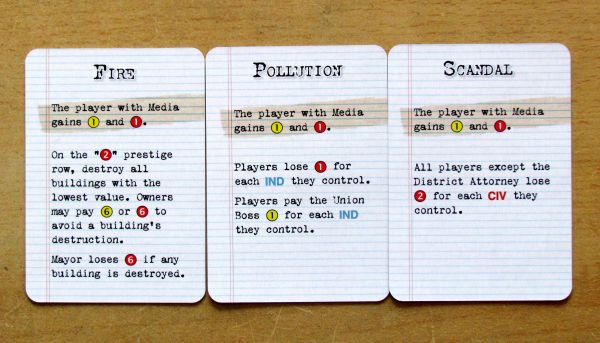 FIRE
The player with Media
gains 1 and 1.
On the "2" prestige
row, destroy all
buildings with the
lowest value. Owners
may pay 6 or 6 to
avoid a building's
destruction.
Mayor loses 6 if any
building is destroyed.
POLLUTION
The player with Media
gains 1 and 1.
Players lose 1 for
each IND they control.
Players pay the Union
Boss 1 for each IND
they control.
SCANDAL
The player with Media
gains 1 and 1.
All players except the
District Attorney lose
2 for each CIV they
control.